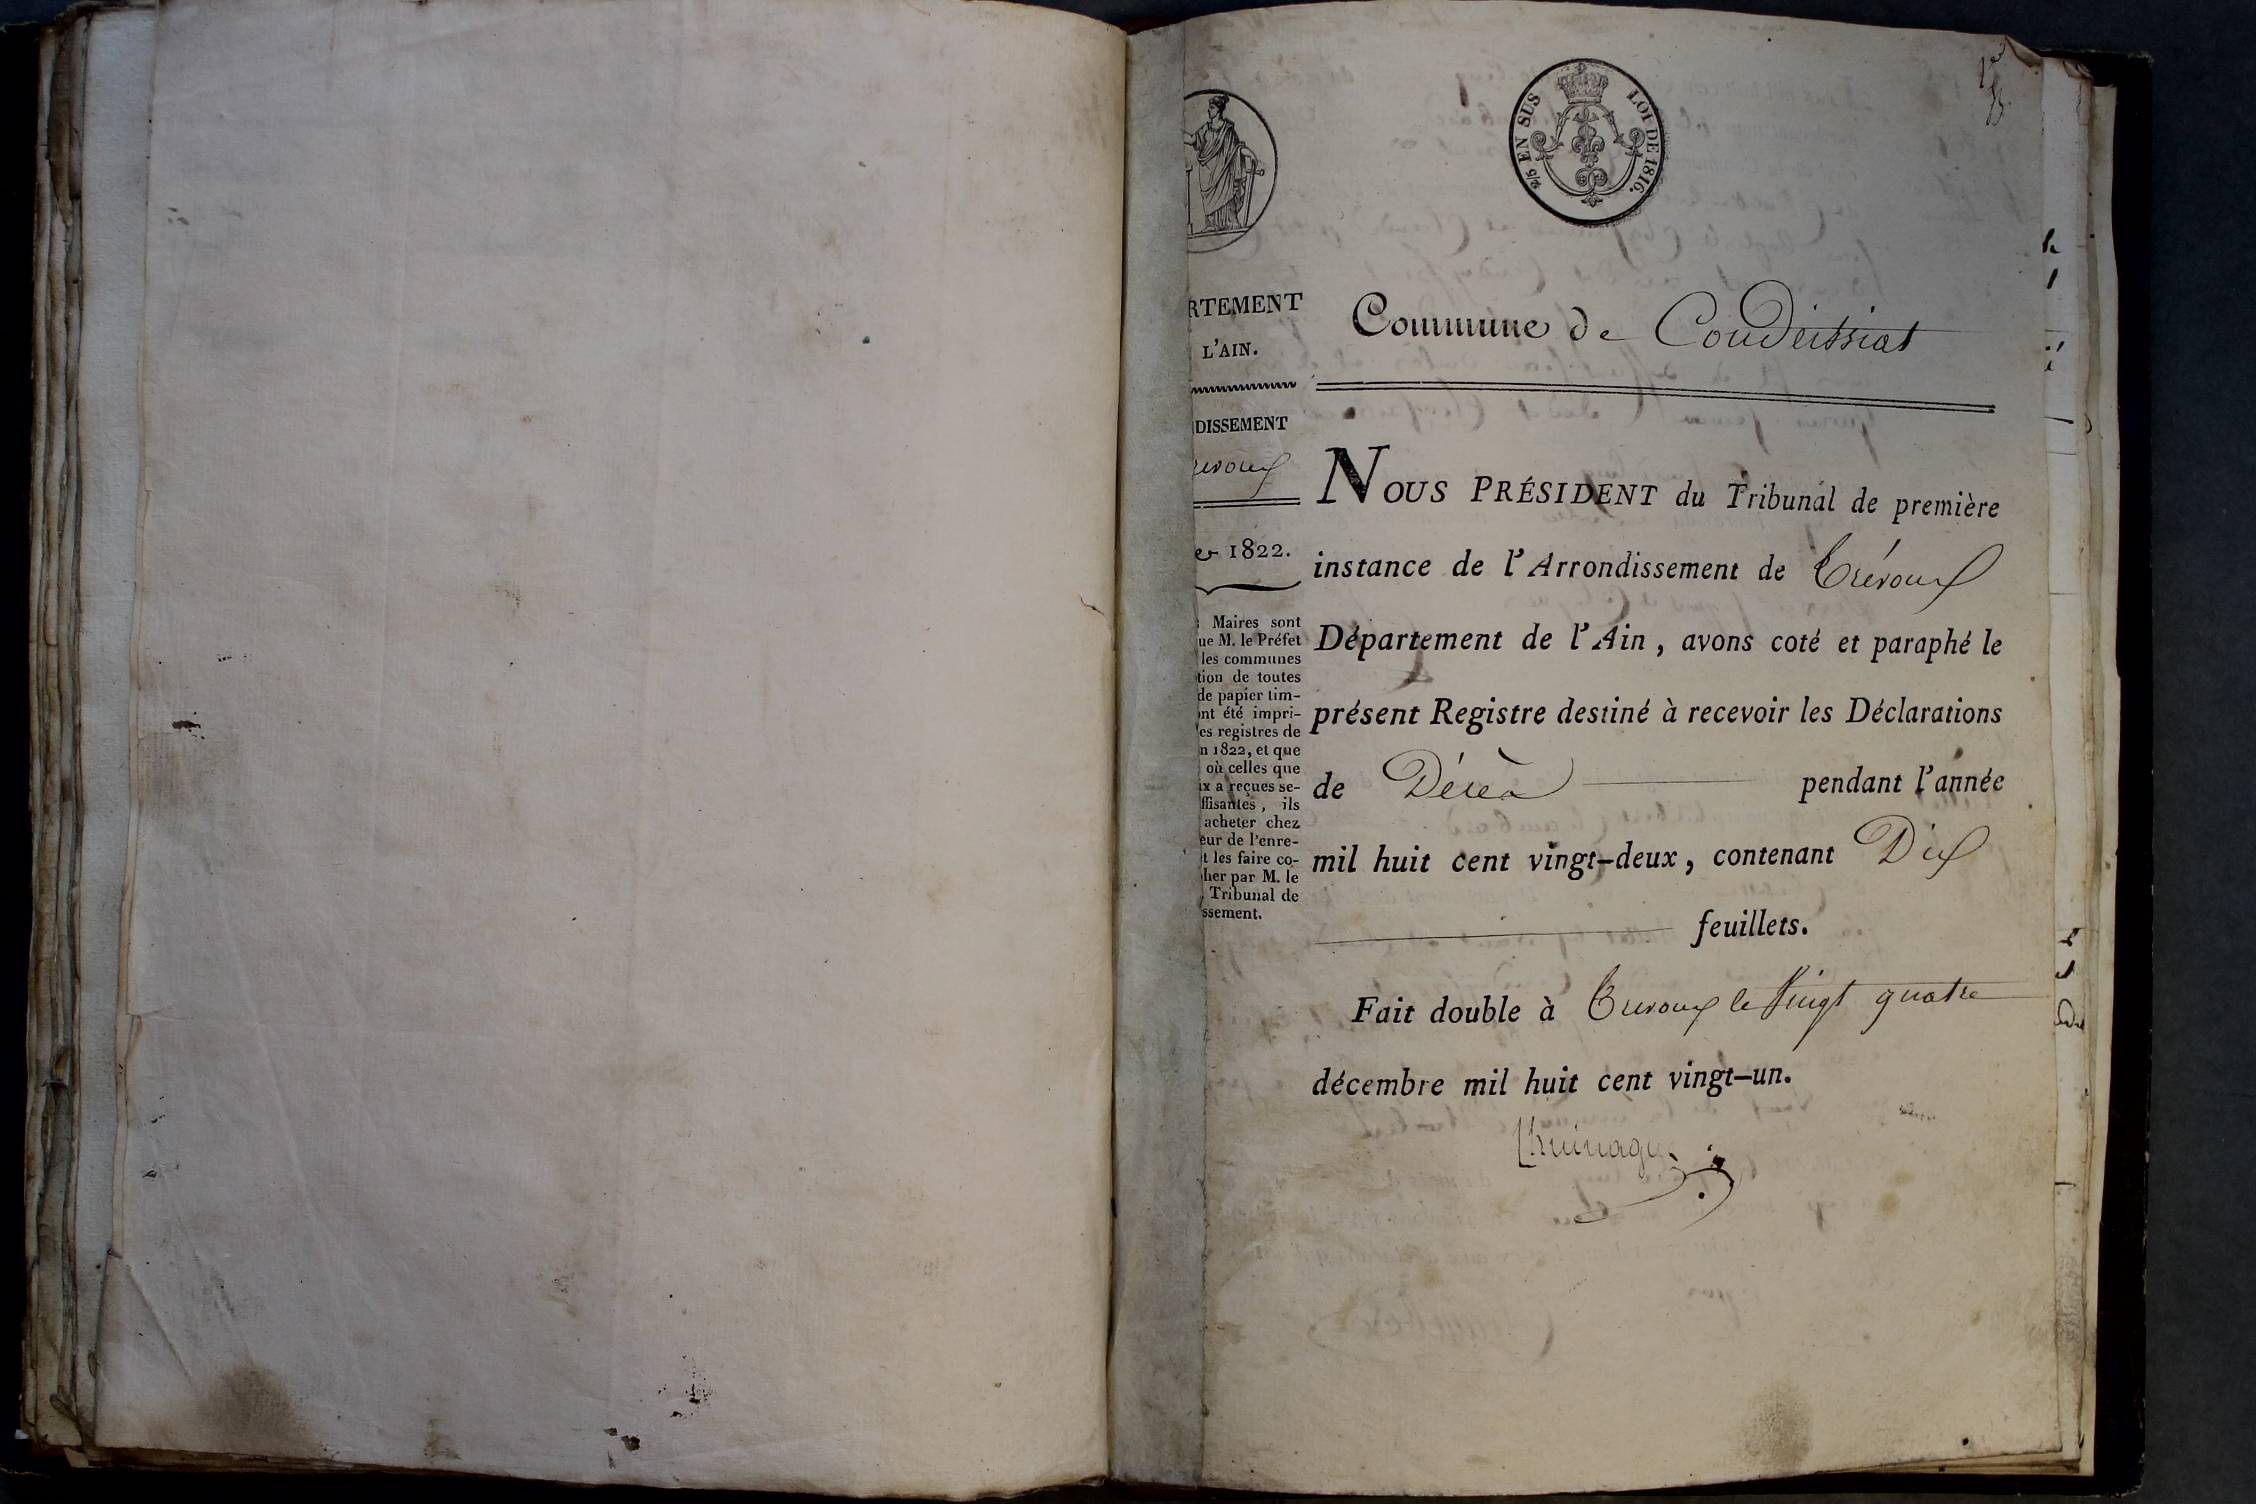 2/5 EN SUS LOI DE 1816.
1er
RTEMENT
L'AIN.
DISSEMENT
revoux
er 1822.
Maires sont
ue M. le Préfet
les communes
tion de toutes
de papier tim-
nt été impri-
es registres de
n 1822, et que
où celles que
ux a reçues se-
ffisantes, ils
acheter chez
eur de l'enre-
t les faire co-
her par M. le
Tribunal de
ssement.
Commune de Condeissiat
NOUS PRÉSIDENT du Tribunal de première
instance de l'Arrondissement de Trévoux
Département de l'Ain, avons coté et paraphé le
présent Registre destiné à recevoir les Déclarations
de Décès pendant l'année
mil huit cent vingt-deux, contenant Dix
feuillets.
Fait double à Trevoux le Vingt quatre
décembre mil huit cent vingt-un.